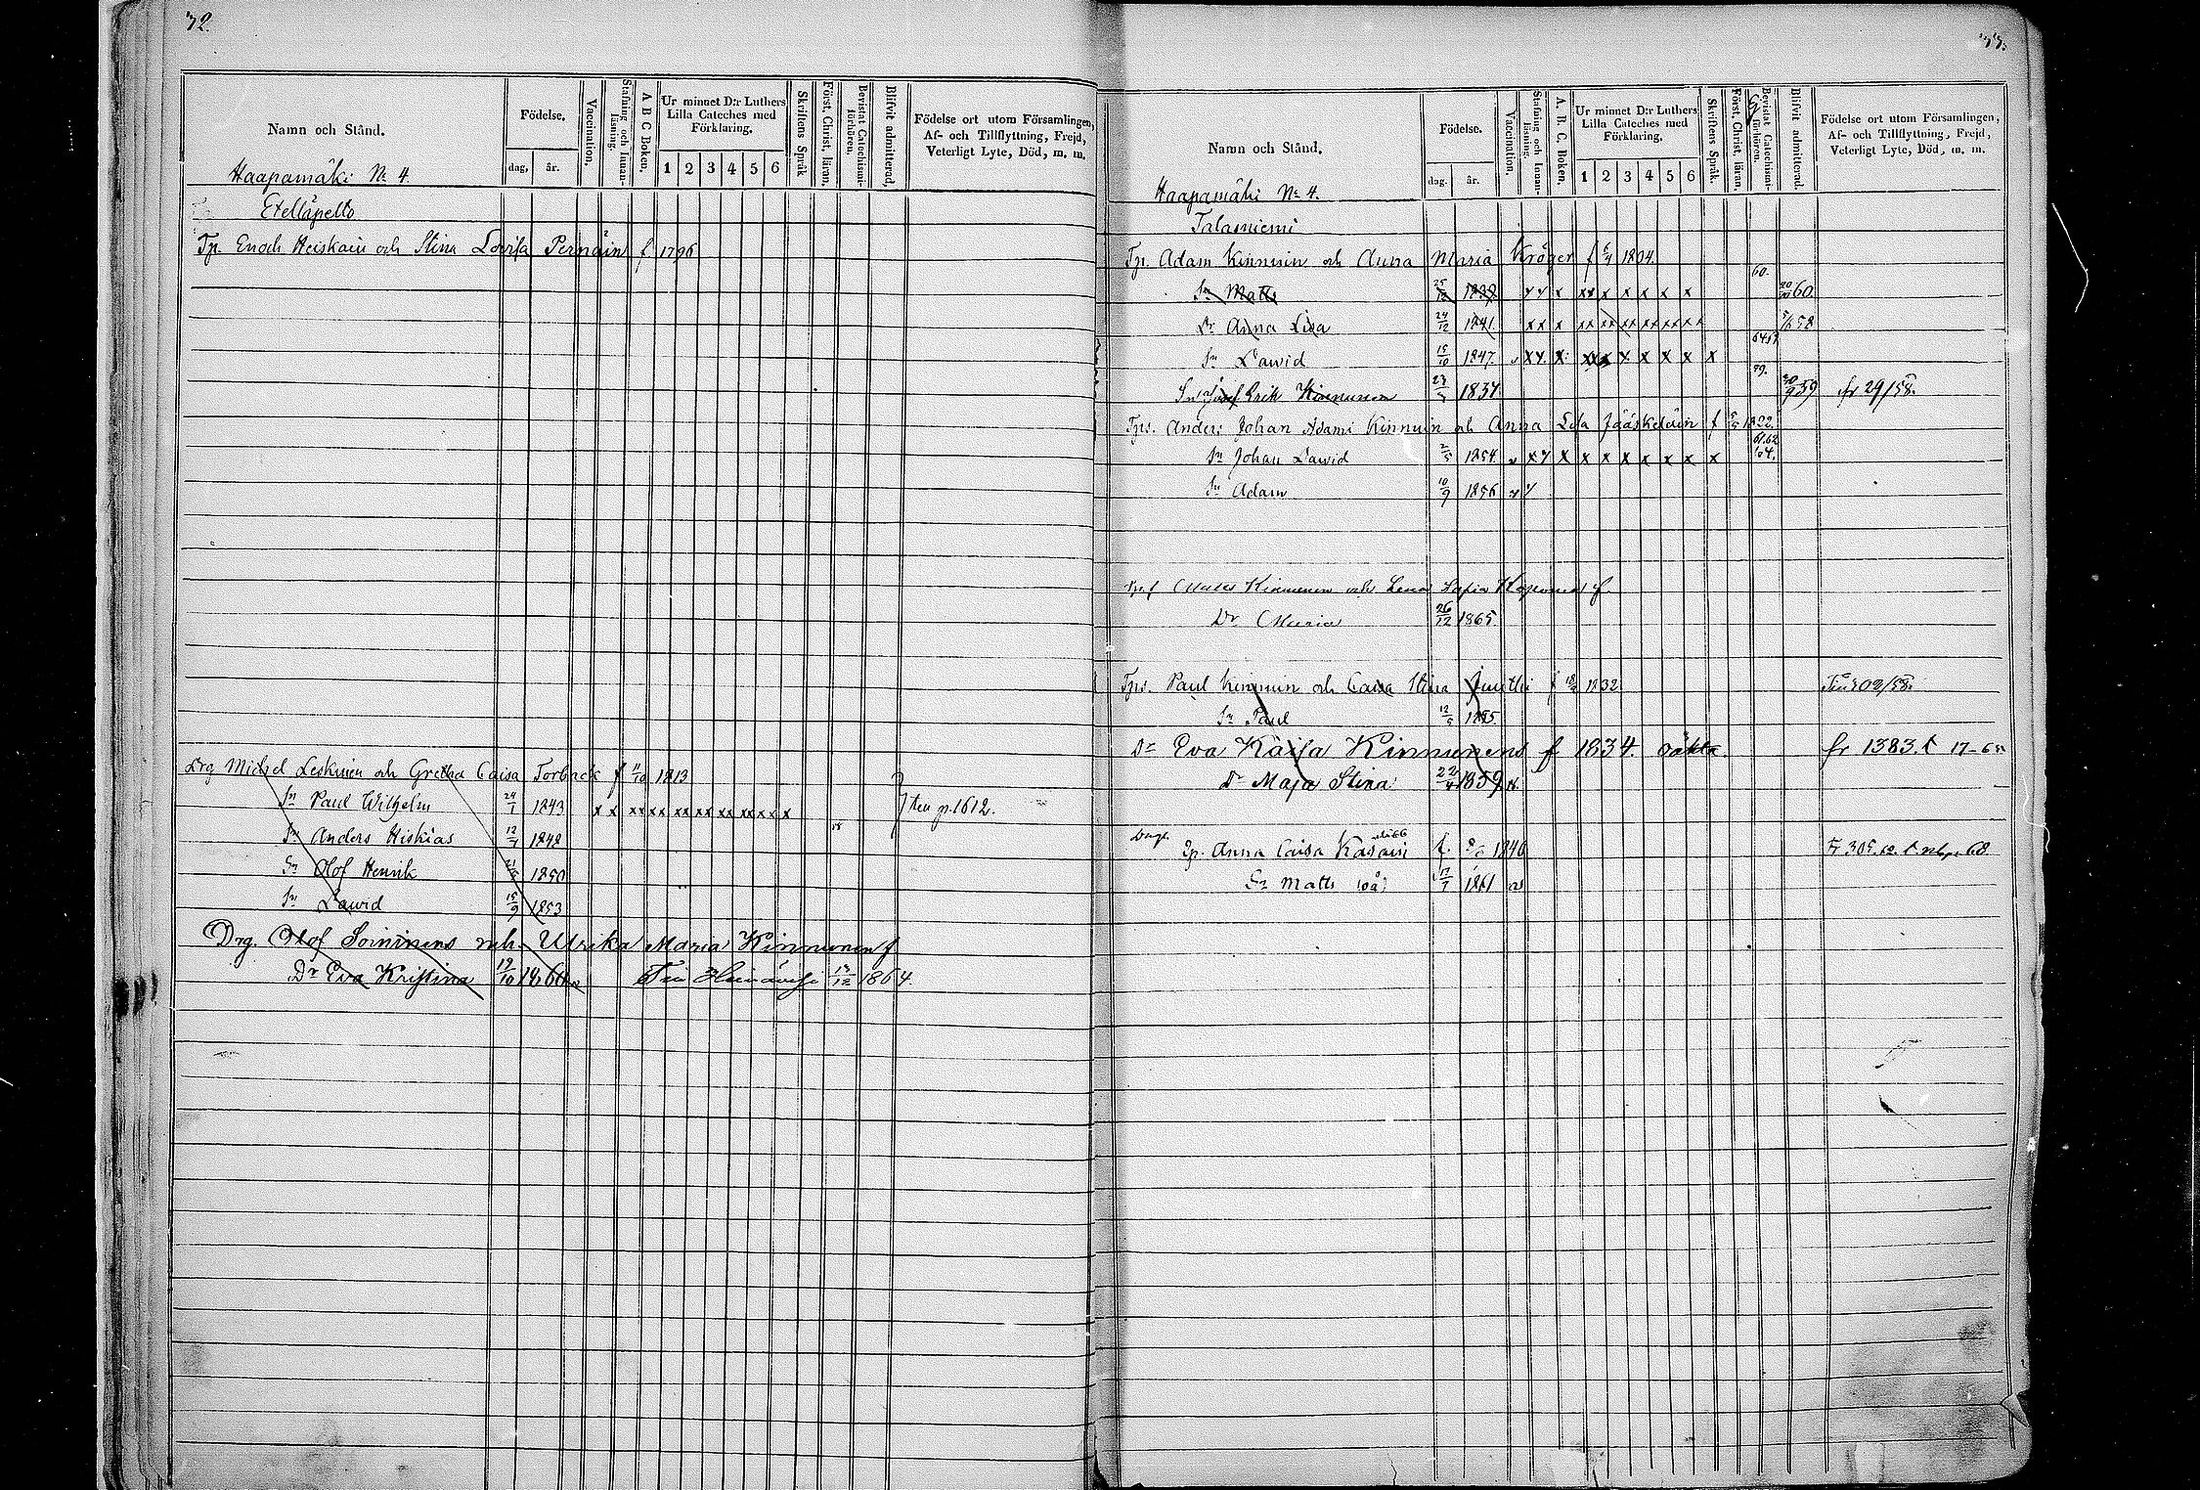 72.
Namn och Stånd.
Födelse.
dag, år.
Vaccination.
Stafning och Innan-läsning.
A B C Boken.
Ur minnet D:r Luthers Lilla Cateches med Förklaring.
1 2 3 4 5 6
Skriftens Språk
Först. Christ. läran.
Bevistat Catechismi-förhören.
Blifvit admitterad.
Födelse ort utom Församlingen, Af- och Tillflyttning, Frejd, Veterligt Lyte, Död, m. m.
Haapamäki No 4.
Etelläpelto
Tp. Enoch Heiskain och Stina Lovisa Pernäin f 1796
Drg Michel Leskinen och Gretha Caisa Torback f 11/10 1813
Sn Paul Wilhelm 24/1 1843 x x xx xx xx xx xx xx xx x
ten p. 1612.
Sn Anders Hiskias 1848
Sn Olof Henrik 1850
Sn Lawid 15/9 1853
Drg. Olof Soininens enh. Ulrika Maria Kinnunen f
Dr Eva Kristina 19/10 1860 Till Heinävesi 13/12 1864.
Namn och Stånd.
Födelse.
dag. år.
Vaccination.
Stafning och Innan-läsning.
A. B. C. Boken.
Ur minnet D:r Luthers Lilla Cateches med Förklaring.
1 2 3 4 5 6
Skriftens Språk.
Först. Christ. läran.
Bevistat Catechismi-förhören.
Blifvit admitterad.
Födelse ort utom Församlingen, Af- och Tillflyttning, Frejd, Veterligt Lyte, Död, m. m.
Haapamäki No 4.
Talasniemi
Tp. Adam Kinnuin och Anna Maria Kröger f 1804.
60.
Sn Matts 1839 x x x x x x x x x 60.
Dr Anna Lisa 24/12 1841. xx x xx xx xx xx xx xx 58
Sn Lawid 15/10 1847. x x x x x x x x x
59.
Sn Josef Erik Kinnunen 1837. 59 fr 29/58.
Tps. Anders Johan Adami Kinnuin och Anna Lisa Jääskeläin f 1822.
61.62
Sn Johan Lawid 2/5 1854. x x x x x x x x x x 64.
Sn Adam 10/9 1856
Kinnunen och Lena Sofia f.
Dr Maria 26/12 1865.
Tps. Paul Kinnuin och Caisa Stina f 1832
Sn Paul 1855.
Dr Eva Kaisa Kinnunens f 1834. oäkta. fr 1383.
Dr Maja Stina 22/4 1859
Anna Caisa Kasani f. 1840
Sn Matts (oä) 17/7 1861